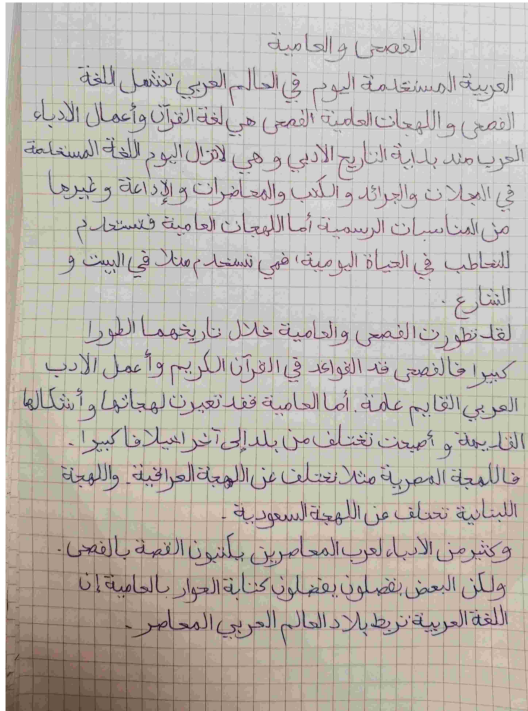 الفصحى والعامية
العربية المستخدمة اليوم في العالم العربي تشمل اللغة
الفصحى و اللهجات العامية الفصحى هي لغة القرآن وأعمال الادباء
العرب منذ بداية التاريخ الادبي و هي لاتزال اليوم اللغة المستخدمة
في المجلات والجرائد و الكتب والمحاضرات و الإذاعة و غيرها
من المناسبات الرسمية أما اللهجات العامية فتستخدم
للتخاطب في الحياة اليومية، فهي تستخدم مثلا في البيت و
الشارع .
لقد تطورت الفصحى والعامية خلال تاريخهما الطورا
كبيرا فالفصحى قد القواعد في القرآن الكريم وأعمل الادب
العربي القايم عامة . أما العامية فقد تغيرت لهجاتها و أشكالها
القديمة و أصبحت تختلف من بلد إلى آخر اختلافا كبيرا .
فاللهجة المصرية مثلا تختلف عن اللهجة العراقية . واللهجة
اللبنانية تختلف عن اللهجة السعودية .
و كثير من الادباء لعرب المعاصرين يكتبون القصة بالفصحى .
ولكن البعض يفضلون يفضلون كتابة الحوار بالعامية إن
اللغة العربية تربط بلاد العالم العربي المعاصر .